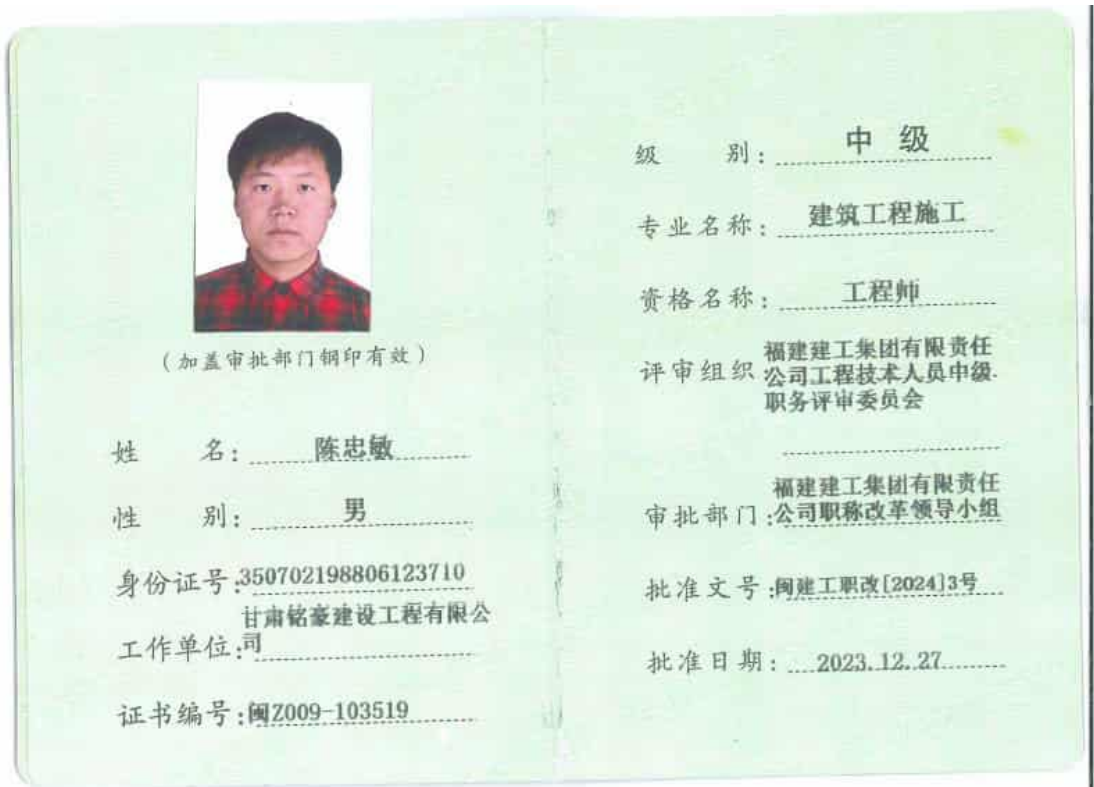 (加盖审批部门钢印有效)
姓 名: 陈忠敏
性 别: 男
身份证号: 350702198806123710
甘肃铭豪建设工程有限公
工作单位: 司
证书编号: 闽Z009-103519
级 别: 中 级
专业名称: 建筑工程施工
资格名称: 工程师
福建建工集团有限责任
评审组织 公司工程技术人员中级
职务评审委员会
福建建工集团有限责任
审批部门: 公司职称改革领导小组
批准文号: 闽建工职改[2024]3号
批准日期: 2023.12.27